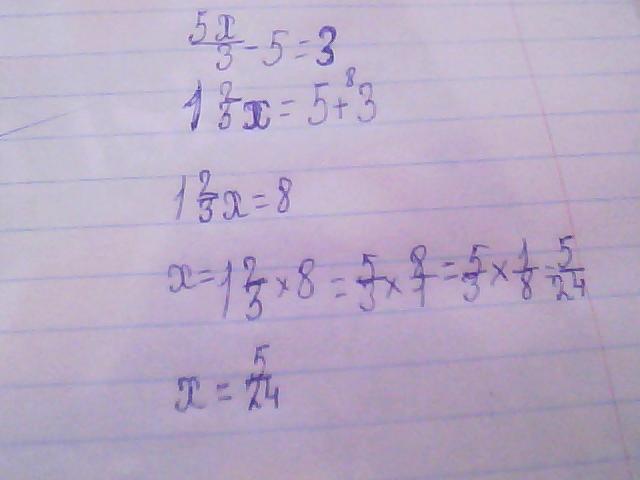 5x/3 - 5 = 3
1 2/3 x = 5 + 3 8
1 2/3 x = 8
x = 1 2/3 × 8 = 5/3 × 8/1 = 5/3 × 1/8 = 5/24
x = 5/24